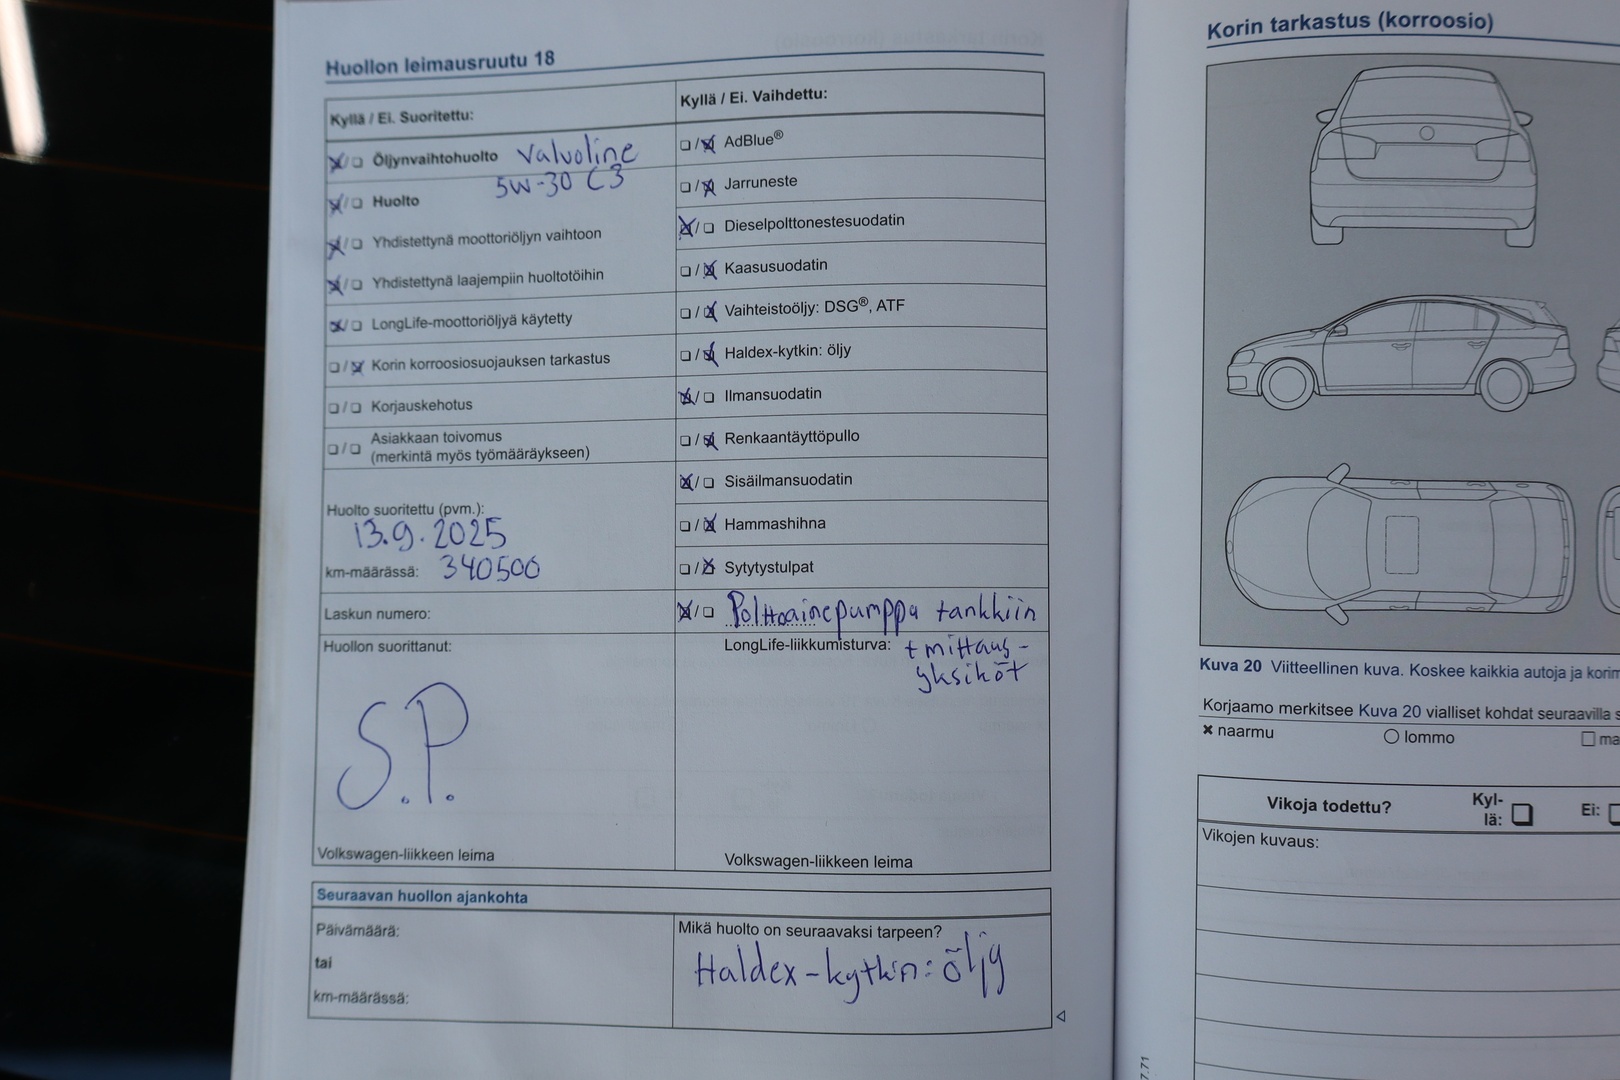 Huollon leimausruutu 18
Kyllä / Ei. Suoritettu:
Öljynvaihtohuolto Valvoline
5W-30 C3
Huolto
Yhdistettynä moottoriöljyn vaihtoon
Yhdistettynä laajempiin huoltotöihin
LongLife-moottoriöljyä käytetty
Korin korroosiosuojauksen tarkastus
Korjauskehotus
Asiakkaan toivomus
(merkintä myös työmääräykseen)
Huolto suoritettu (pvm.):
13.9.2025
km-määrässä: 340500
Laskun numero:
Huollon suorittanut:
S.P.
Volkswagen-liikkeen leima
Kyllä / Ei. Vaihdettu:
AdBlue®
Jarruneste
Dieselpolttonestesuodatin
Kaasusuodatin
Vaihteistoöljy: DSG®, ATF
Haldex-kytkin: öljy
Ilmansuodatin
Renkaantäyttöpullo
Sisäilmansuodatin
Hammashihna
Sytytystulpat
Polttoainepumppu tankkiin
LongLife-liikkumisturva: + mittaus-
yksiköt
Volkswagen-liikkeen leima
Seuraavan huollon ajankohta
Päivämäärä:
tai
km-määrässä:
Mikä huolto on seuraavaksi tarpeen?
Haldex-kytkin: öljy
Korin tarkastus (korroosio)
Kuva 20 Viitteellinen kuva. Koskee kaikkia autoja ja korim
Korjaamo merkitsee Kuva 20 vialliset kohdat seuraavilla s
naarmu lommo ma
Vikoja todettu? Kyl-
lä: Ei:
Vikojen kuvaus:
7.71